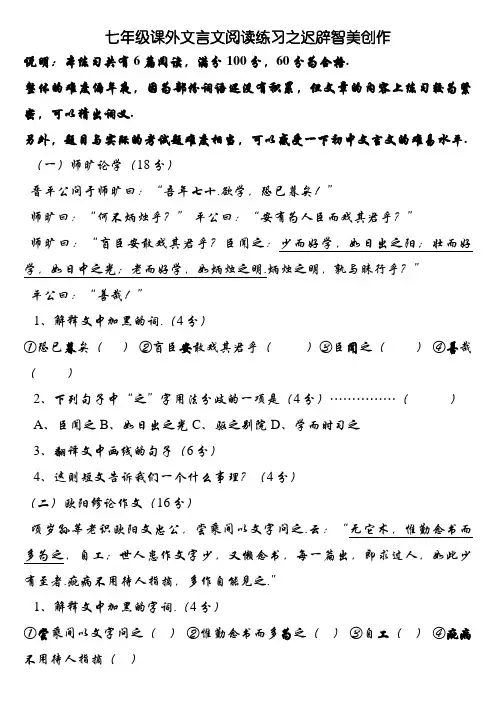 七年级课外文言文阅读练习之迟辟智美创作
说明：本练习共有6篇阅读，满分100分，60分为合格.
整体的难度偏年夜，因为部份词语还没有积累，但文章的内容上练习较为紧密，可以猜出词义.
另外，题目与实际的考试题难度相当，可以感受一下初中文言文的难易水平.
（一）师旷论学（18分）
晋平公问于师旷曰：“吾年七十.欲学，恐已暮矣！”
师旷曰：“何不炳烛乎？” 平公曰：“安有为人臣而戏其君乎？”
师旷曰：“盲臣安敢戏其君乎？臣闻之：少而好学，如日出之阳；壮而好
学，如日中之光；老而好学，如炳烛之明.炳烛之明，孰与昧行乎？”
平公曰：“善哉！”
1、解释文中加黑的词.（4分）
①恐已暮矣（ ） ②盲臣安敢戏其君乎（ ）③臣闻之（ ） ④善哉
（ ）
2、下列句子中“之”字用法分歧的一项是（4分）……………（ ）
A、臣闻之B、如日出之光C、驱之别院D、学而时习之
3、翻译文中画线的句子（6分）
4、这则短文告诉我们一个什么事理？（4分）
（二）欧阳修论作文（16分）
顷岁孙莘老识欧阳文忠公，尝乘间以文字问之.云：“无它术，惟勤念书而
多为之，自工；世人患作文字少，又懒念书，每一篇出，即求过人，如此少
有至者.疵病不用待人指摘，多作自能见之.”
1、解释文中加黑的字词.（4分）
①尝乘间以文字问之（ ） ②惟勤念书而多为之（ ） ③自工（ ） ④疵病
不用待人指摘（ ）